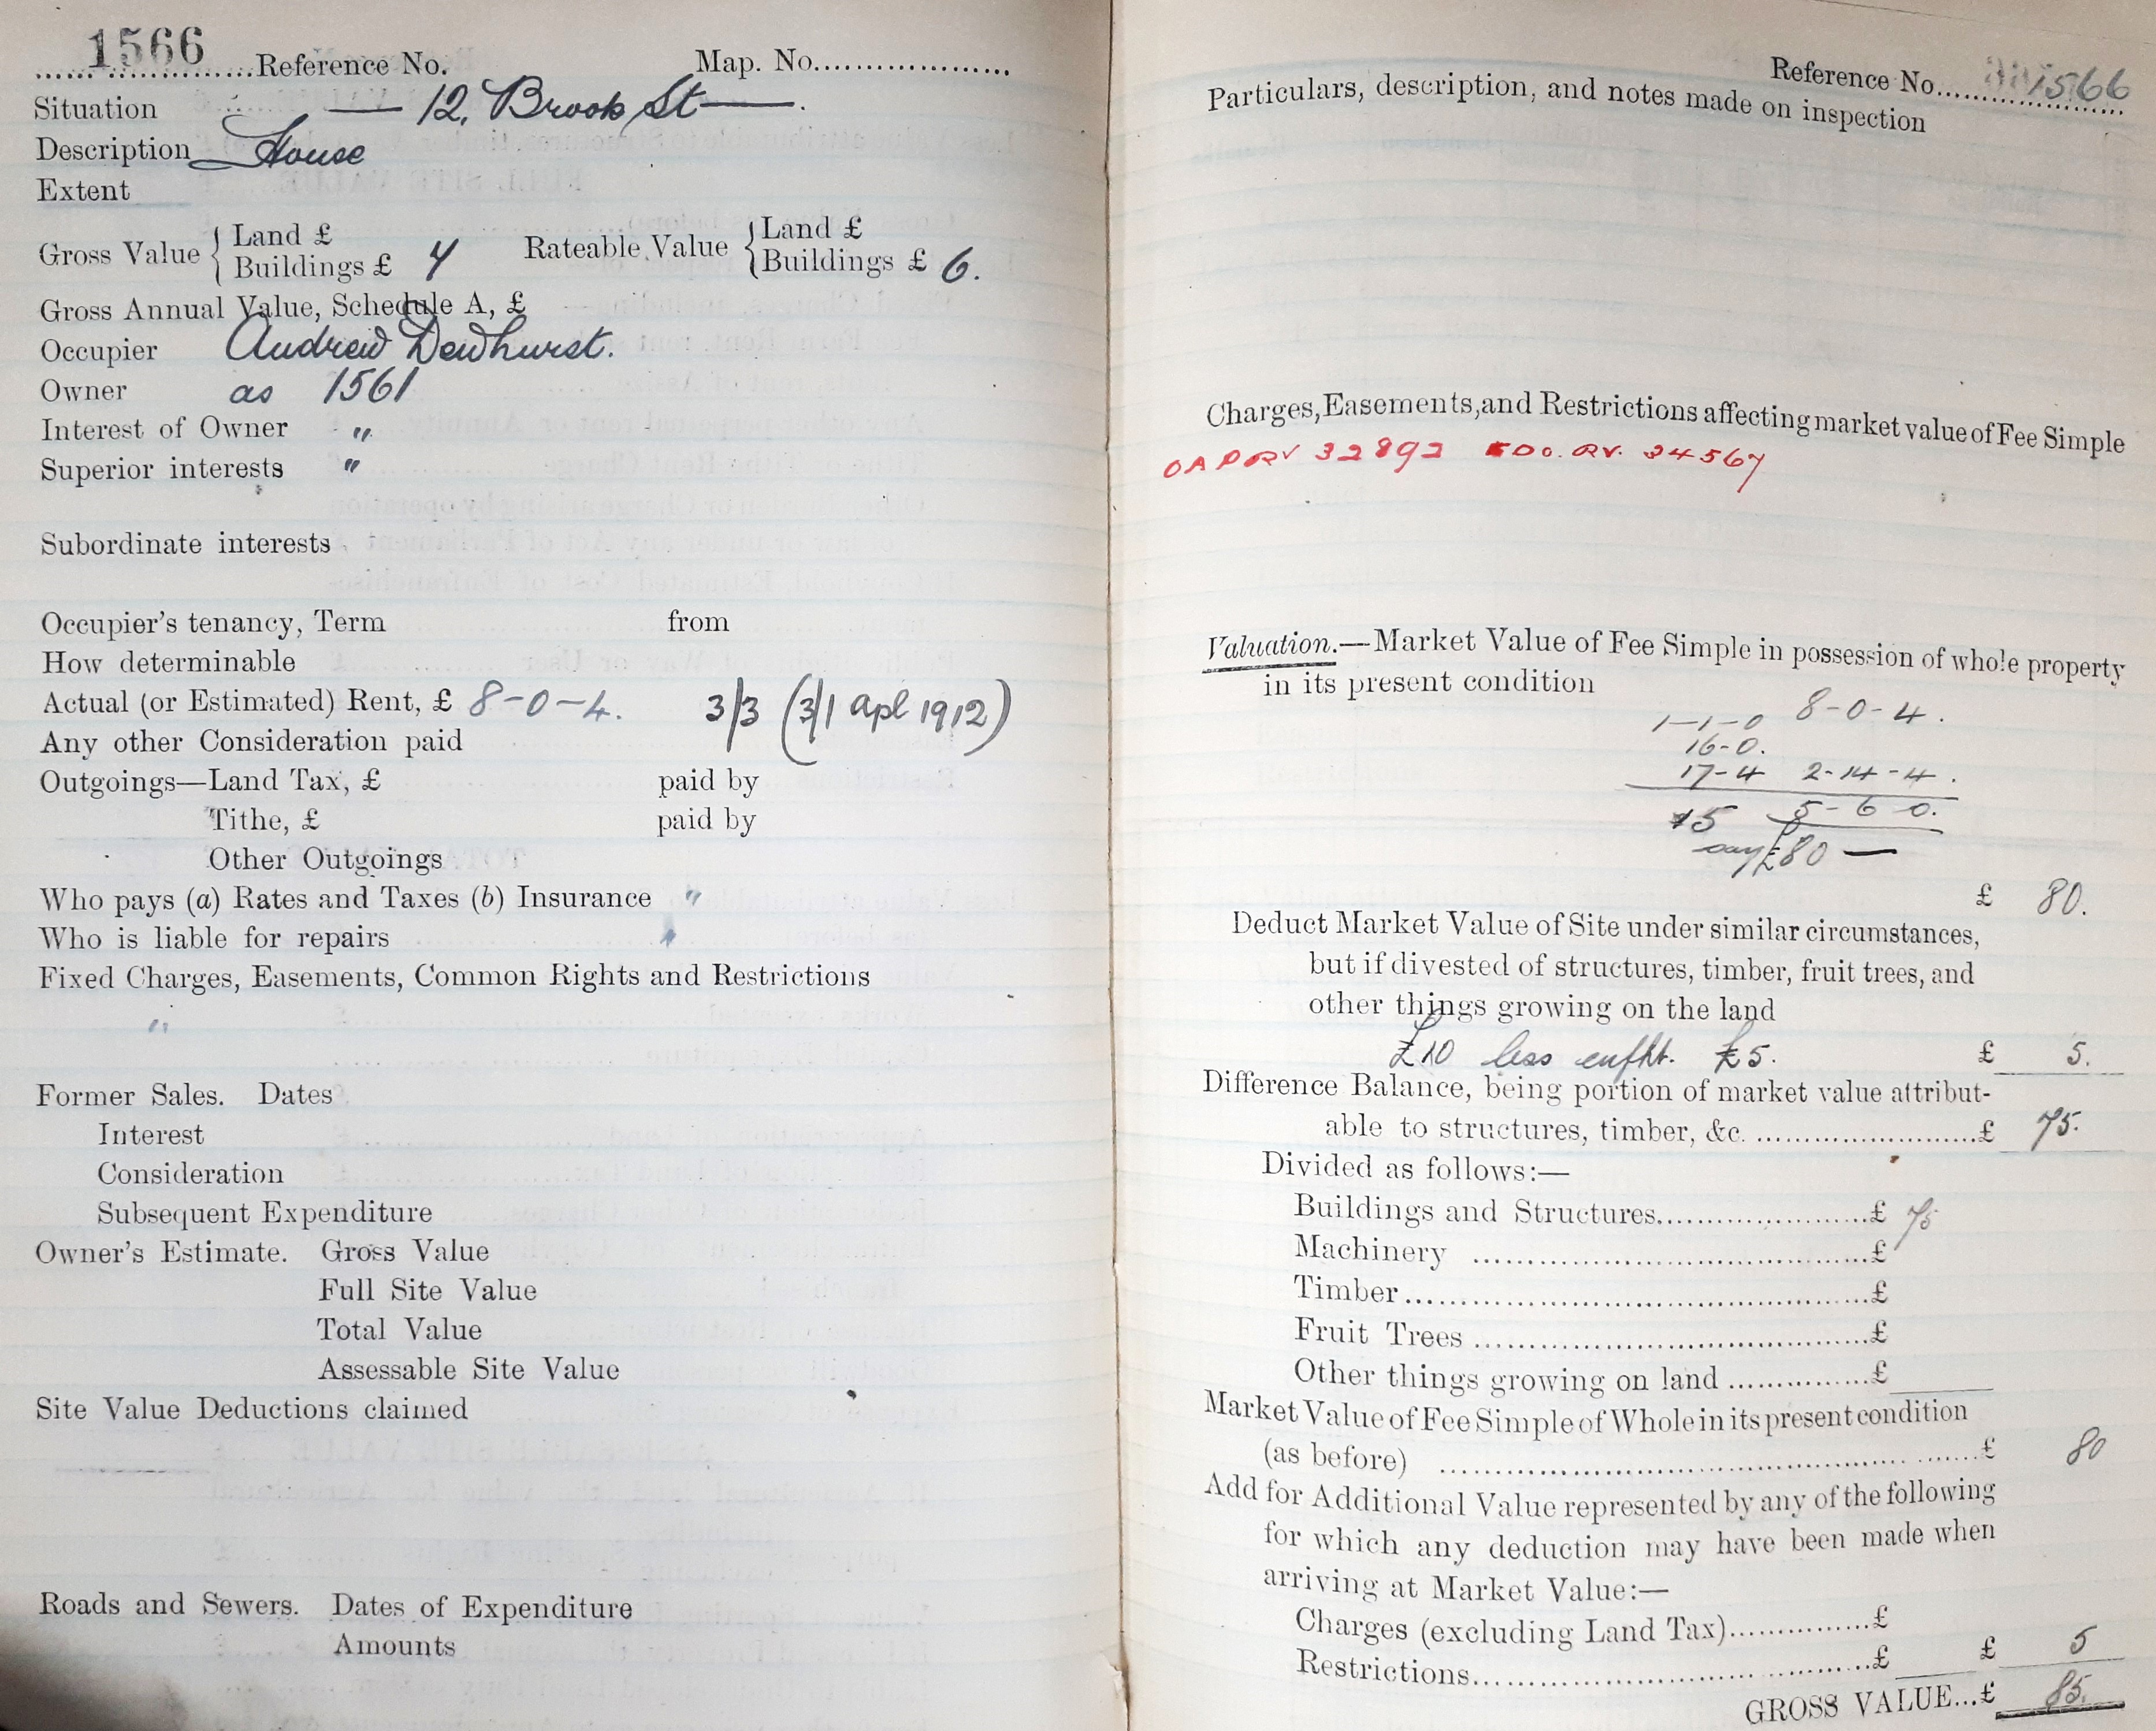 1566 Reference No. Map. No.
Situation — 12, Brook St —.
Description House
Extent
Gross Value { Land £
Buildings £ 7
Rateable Value { Land £
Buildings £ 6.
Gross Annual Value, Schedule A, £
Occupier Andrew Dewhurst.
Owner as 1561
Interest of Owner "
Superior interests "
Subordinate interests
Occupier's tenancy, Term from
How determinable
Actual (or Estimated) Rent, £ 8-0-4. 3/3 (3/1 Apl 1912)
Any other Consideration paid
Outgoings—Land Tax, £ paid by
Tithe, £ paid by
Other Outgoings
Who pays (a) Rates and Taxes (b) Insurance "
Who is liable for repairs "
Fixed Charges, Easements, Common Rights and Restrictions
"
Former Sales. Dates
Interest
Consideration
Subsequent Expenditure
Owner's Estimate. Gross Value
Full Site Value
Total Value
Assessable Site Value
Site Value Deductions claimed
Roads and Sewers. Dates of Expenditure
Amounts
Reference No. 1566
Particulars, description, and notes made on inspection
Charges, Easements, and Restrictions affecting market value of Fee Simple
32892 24567
Valuation.—Market Value of Fee Simple in possession of whole property
in its present condition
1-1-0 8-0-4.
16-0.
17-4 2-14-4.
15 5-6 0.
say £80 —
£ 80.
Deduct Market Value of Site under similar circumstances,
but if divested of structures, timber, fruit trees, and
other things growing on the land
£10 less enfht. £5. £ 5.
Difference Balance, being portion of market value attribut-
able to structures, timber, &c. £ 75.
Divided as follows:—
Buildings and Structures £ 75
Machinery £
Timber £
Fruit Trees £
Other things growing on land £
Market Value of Fee Simple of Whole in its present condition
(as before) £ 80
Add for Additional Value represented by any of the following
for which any deduction may have been made when
arriving at Market Value:—
Charges (excluding Land Tax) £
Restrictions £ £ 5
GROSS VALUE...£ 85.